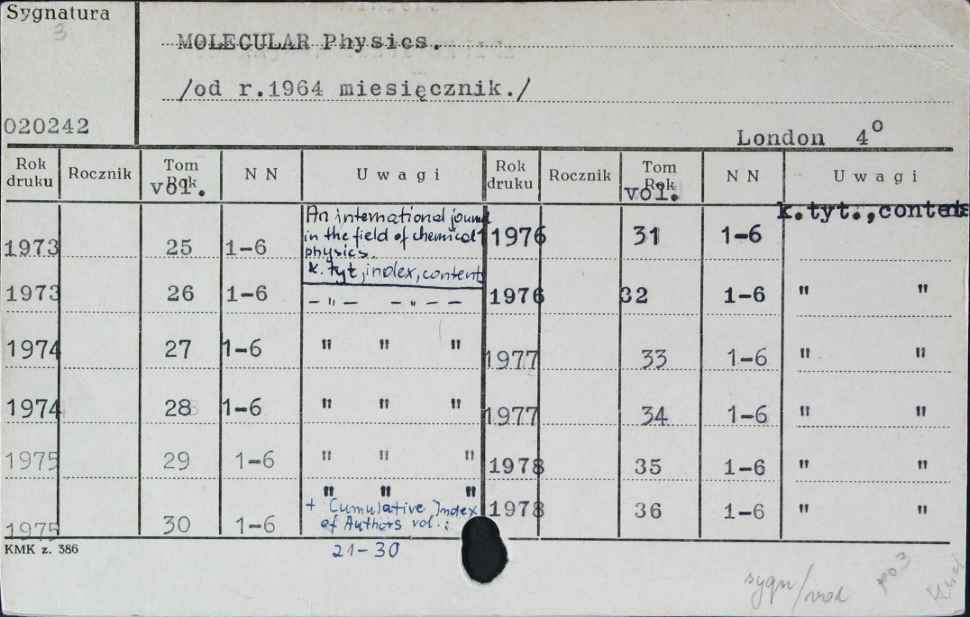 Sygnatura
3
MOLECULAR Physics.
/od r.1964 miesięcznik./
020242
London 4°
Rok druku Rocznik Tom Rok vol. N N Uwagi Rok druku Rocznik Tom Rok vol. N N Uwagi
1973 25 1-6
An international journ
in the field of chemical
physics.
k. tyt, index, content
1976 31 1-6 k.tyt.,contents
1973 26 1-6 - " - - " - - 1976 32 1-6 " "
1974 27 1-6 " " " 1977 33 1-6 " "
1974 28 1-6 " " " 1977 34 1-6 " "
1975 29 1-6 " " " 1978 35 1-6 " "
1975 30 1-6 " " "
+ Cumulative Index
of Authors vol.:
21-30
1978 36 1-6 " "
KMK z. 386